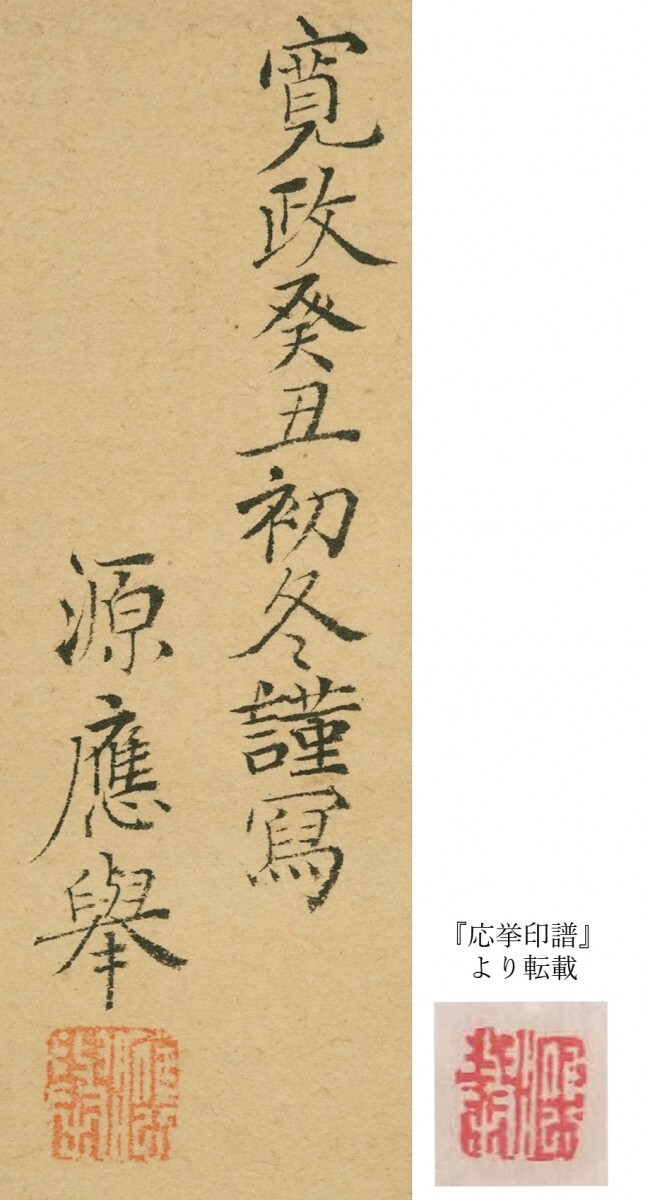 寛政癸丑初冬謹寫
源應擧
『応挙印譜』
より転載